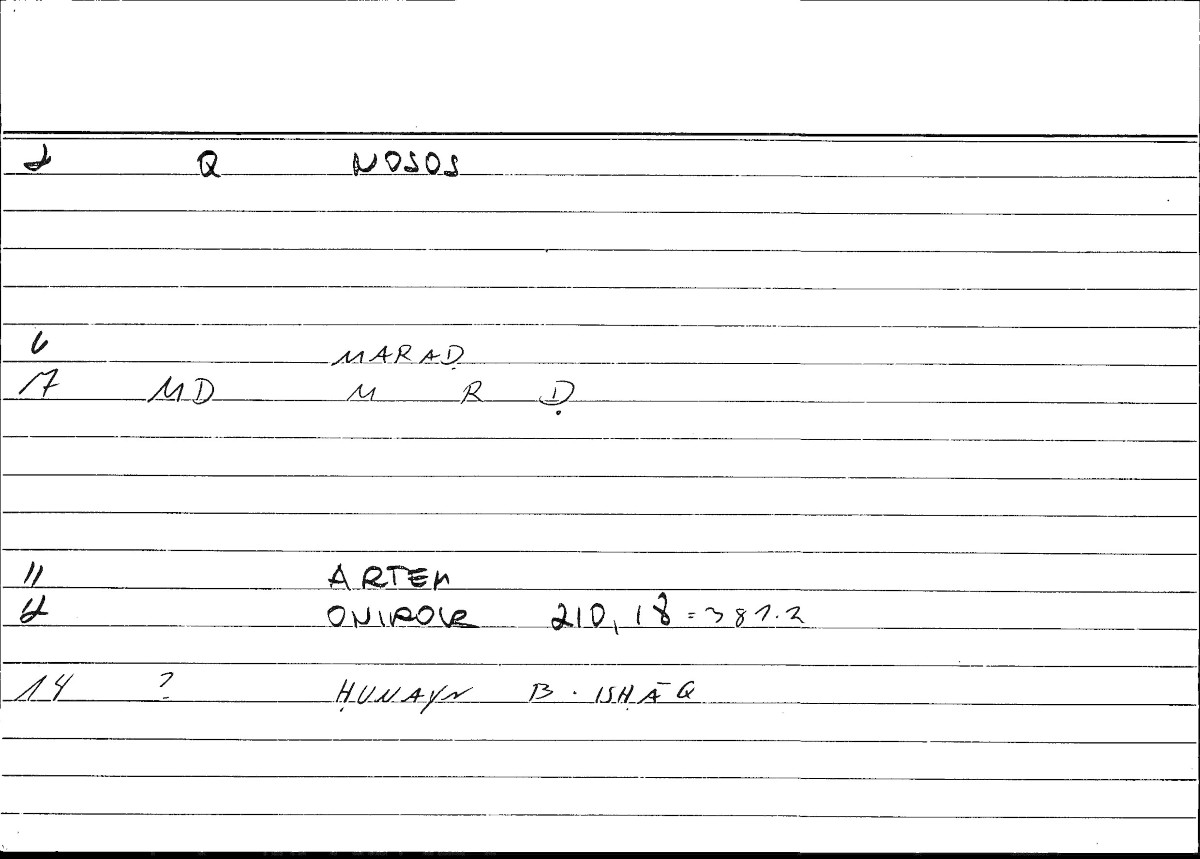 2 Q NOSOS
6 MARAḌ
17 MD M R Ḍ
11 ARTEM
12 ONIROCR 210,18 = 387.2
14 ? ḤUNAYN B. ISḤĀQ